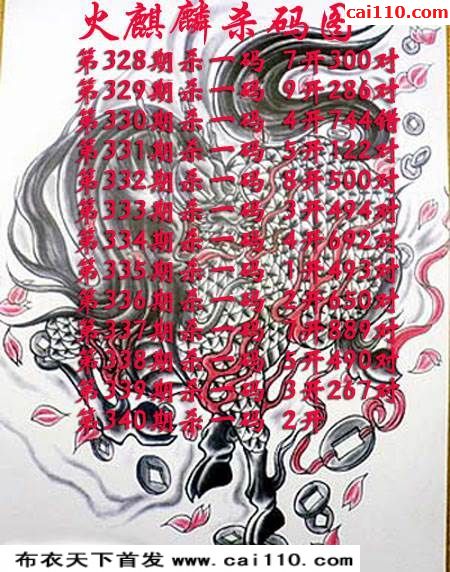 cai110.com
火麒麟杀码图
第328期杀一码 7开300对
第329期杀一码 9开286对
第330期杀一码 4开744错
第331期杀一码 5开122对
第332期杀一码 8开500对
第333期杀一码 3开494对
第334期杀一码 4开692对
第335期杀一码 1开493对
第336期杀一码 2开650对
第337期杀一码 1开889对
第338期杀一码 5开490对
第339期杀一码 3开267对
第340期杀一码 2开
布衣天下首发 www.cai110.com